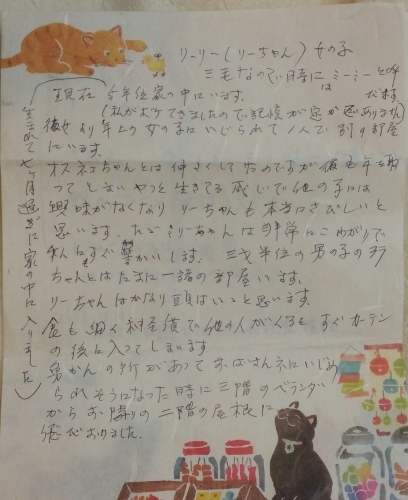 リーリー(リーちゃん) 女の子
三毛なので時には ミーミーと呼
びます
現在 今年位家の中にいます。
(私がボケてきましたので記憶が定かでありません)
彼女より年上の女の子にいじられて1人で別の部屋
にいます。
オスネコちゃんとは仲よくしてたのですが彼も年を取
ってしまいやっと生きてる感じで他の子には
興味がなくなり リーちゃんも本当はさびしいと
思います。ただリーちゃんは非常にこわがりで
私にもすぐ かいします。 三才半位の男の子の
ちゃんとはたまに一緒の部屋います。
リーちゃんはかなり頭はいいと思います。
食も細く神経質で他の人がくるとすぐカーテン
の後に入ってしまいます
勇かんの所があっておばさんネコにいじめ
られそうになった時に三階のベランダ
からお隣りの二階の屋根に
飛びおりました。
生まれて七ヶ月過ぎに家の中に入りました